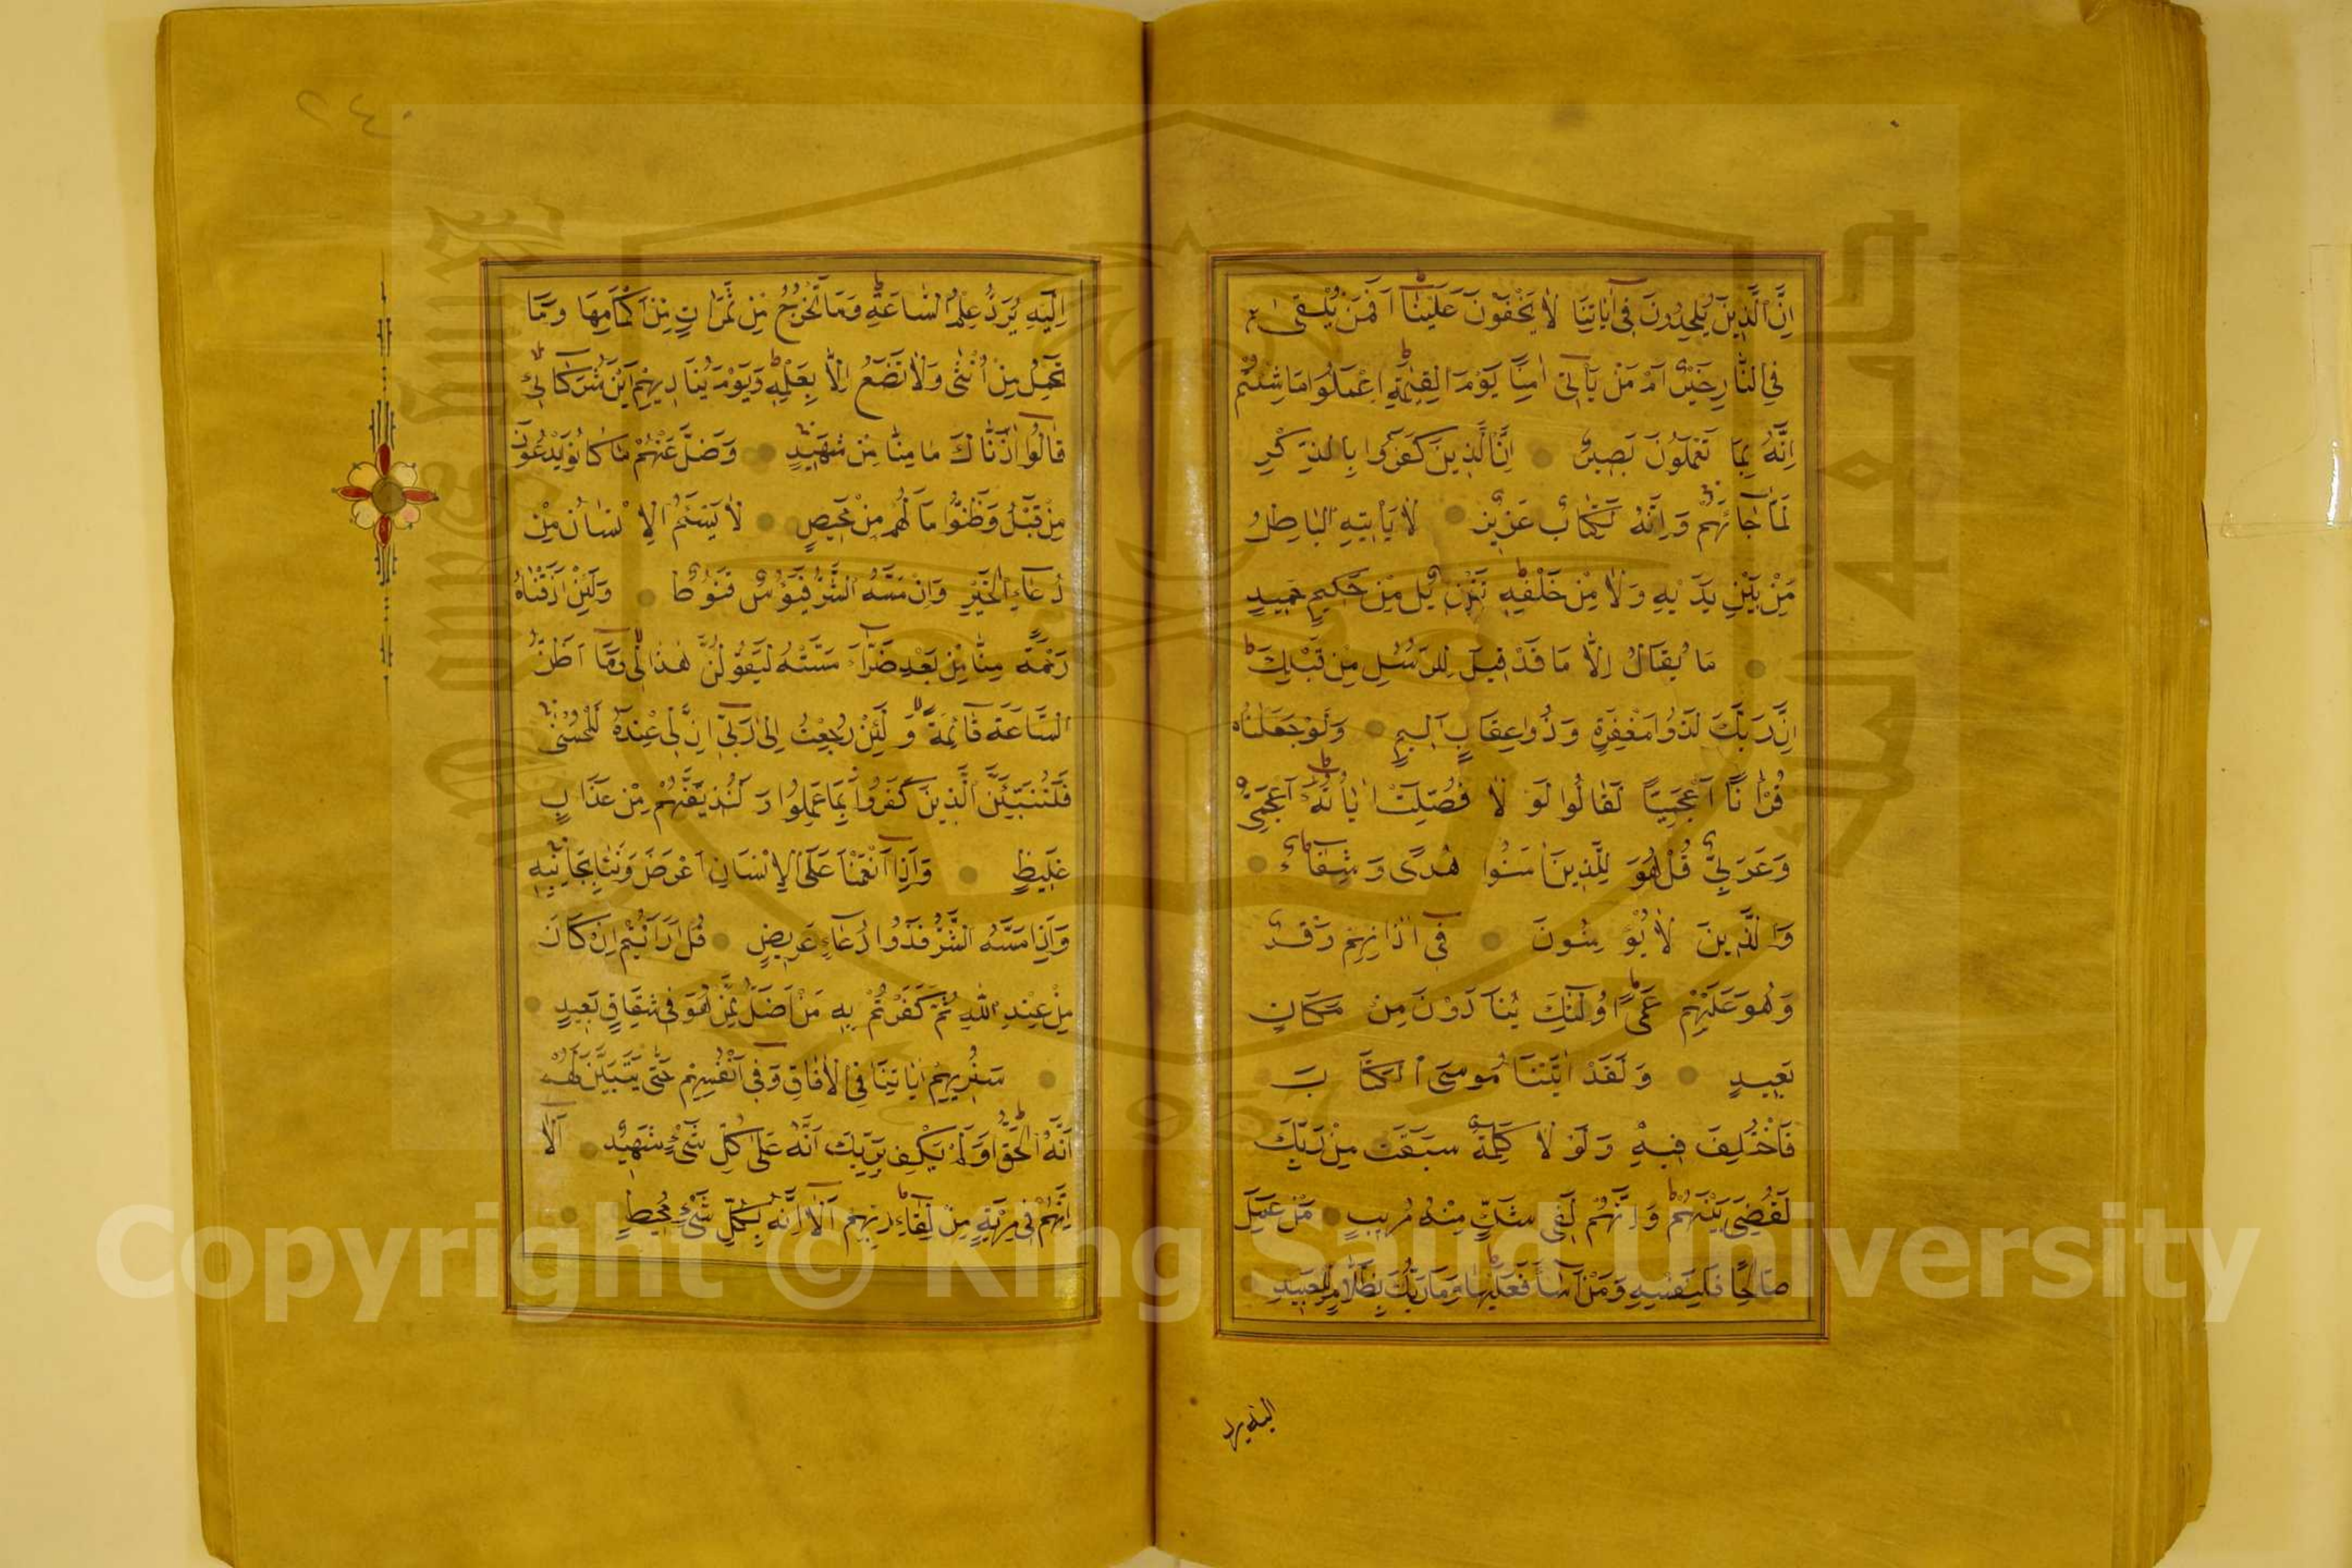 اِنَّ الَّذِينَ يُلْحِدُونَ فِى اٰيَاتِنَا لَا يَخْفَوْنَ عَلَيْنَا اَفَمَنْ يُلْقٰى
فِي النَّارِ خَيْرٌ اَمْ مَنْ يَأْتِى اٰمِنًا يَوْمَ الْقِيٰمَةِ اِعْمَلُوا مَا شِئْتُمْ
اِنَّهُ بِمَا تَعْمَلُونَ بَصِيرٌ اِنَّ الَّذِينَ كَفَرُوا بِالذِّكْرِ
لَمَّا جَائَهُمْ وَاِنَّهُ لَكِتَابٌ عَزِيزٌ لَا يَأْتِيهِ الْبَاطِلُ
مِنْ بَيْنِ يَدَيْهِ وَلَا مِنْ خَلْفِهِ تَنْزِيلٌ مِنْ حَكِيمٍ حَمِيدٍ
مَا يُقَالُ لَكَ اِلَّا مَا قَدْ قِيلَ لِلرُّسُلِ مِنْ قَبْلِكَ
اِنَّ رَبَّكَ لَذُوا مَغْفِرَةٍ وَذُوا عِقَابٍ اَلِيمٍ وَلَوْ جَعَلْنَاهُ
قُرْاٰنًا اَعْجَمِيًّا لَقَالُوا لَوْ لَا فُصِّلَتْ اٰيَاتُهُ ءَاَعْجَمِيٌّ
وَعَرَبِيٌّ قُلْ هُوَ لِلَّذِينَ اٰمَنُوا هُدًى وَشِفَاءٌ
وَالَّذِينَ لَا يُؤْمِنُونَ فِى اٰذَانِهِمْ وَقْرٌ
وَهُوَ عَلَيْهِمْ عَمًى اُولٰئِكَ يُنَادَوْنَ مِنْ مَكَانٍ
بَعِيدٍ وَلَقَدْ اٰتَيْنَا مُوسَى الْكِتَابَ
فَاخْتُلِفَ فِيهِ وَلَوْ لَا كَلِمَةٌ سَبَقَتْ مِنْ رَبِّكَ
لَقُضِيَ بَيْنَهُمْ وَاِنَّهُمْ لَفِى شَكٍّ مِنْهُ مُرِيبٍ مَنْ عَمِلَ
صَالِحًا فَلِنَفْسِهِ وَمَنْ اَسَاءَ فَعَلَيْهَا وَمَا رَبُّكَ بِظَلَّامٍ لِلْعَبِيدِ
اليه يرد
٢٤٠
اِلَيْهِ يُرَدُّ عِلْمُ السَّاعَةِ وَمَا تَخْرُجُ مِنْ ثَمَرَاتٍ مِنْ اَكْمَامِهَا وَمَا
تَحْمِلُ مِنْ اُنْثٰى وَلَا تَضَعُ اِلَّا بِعِلْمِهِ وَيَوْمَ يُنَادِيهِمْ اَيْنَ شُرَكَائِى
قَالُوا اٰذَنَّاكَ مَا مِنَّا مِنْ شَهِيدٍ وَضَلَّ عَنْهُمْ مَا كَانُوا يَدْعُونَ
مِنْ قَبْلُ وَظَنُّوا مَا لَهُمْ مِنْ مَحِيصٍ لَا يَسْئَمُ الْاِنْسَانُ مِنْ
دُعَاءِ الْخَيْرِ وَاِنْ مَسَّهُ الشَّرُّ فَيَؤُسٌ قَنُوطٌ وَلَئِنْ اَذَقْنَاهُ
رَحْمَةً مِنَّا مِنْ بَعْدِ ضَرَّاءَ مَسَّتْهُ لَيَقُولَنَّ هٰذَا لِى وَمَا اَظُنُّ
السَّاعَةَ قَائِمَةً وَلَئِنْ رُجِعْتُ اِلٰى رَبِّى اِنَّ لِى عِنْدَهُ لَلْحُسْنٰى
فَلَنُنَبِّئَنَّ الَّذِينَ كَفَرُوا بِمَا عَمِلُوا وَلَنُذِيقَنَّهُمْ مِنْ عَذَابٍ
غَلِيظٍ وَاِذَا اَنْعَمْنَا عَلَى الْاِنْسَانِ اَعْرَضَ وَنَئَا بِجَانِبِهِ
وَاِذَا مَسَّهُ الشَّرُّ فَذُوا دُعَاءٍ عَرِيضٍ قُلْ اَرَاَيْتُمْ اِنْ كَانَ
مِنْ عِنْدِ اللّٰهِ ثُمَّ كَفَرْتُمْ بِهِ مَنْ اَضَلُّ مِمَّنْ هُوَ فِى شِقَاقٍ بَعِيدٍ
سَنُرِيهِمْ اٰيَاتِنَا فِى الْاٰفَاقِ وَفِى اَنْفُسِهِمْ حَتّٰى يَتَبَيَّنَ لَهُمْ
اَنَّهُ الْحَقُّ اَوَلَمْ يَكْفِ بِرَبِّكَ اَنَّهُ عَلٰى كُلِّ شَىْءٍ شَهِيدٌ اَلَا
اِنَّهُمْ فِى مِرْيَةٍ مِنْ لِقَاءِ رَبِّهِمْ اَلَا اِنَّهُ بِكُلِّ شَىْءٍ مُحِيطٌ
Copyright © King Saud University
1957